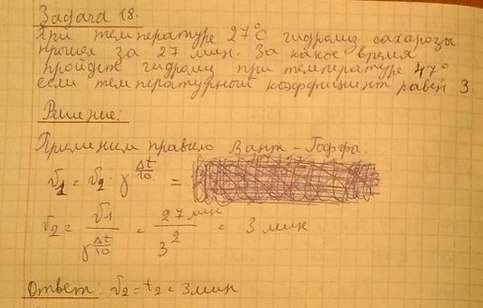 Задача 18.
При температуре 27°С гидролиз сахарозы
прошел за 27 мин. За какое время
пройдет гидролиз при температуре 47°
если температурный коэффициент равен 3
Решение:
Применим правило Вант-Гоффа.
V₁ = V₂ · γ^(Δt/10) =
V₂ = V₁ / γ^(Δt/10) = 27 мин / 3² = 3 мин
Ответ: V₂ = t₂ = 3 мин